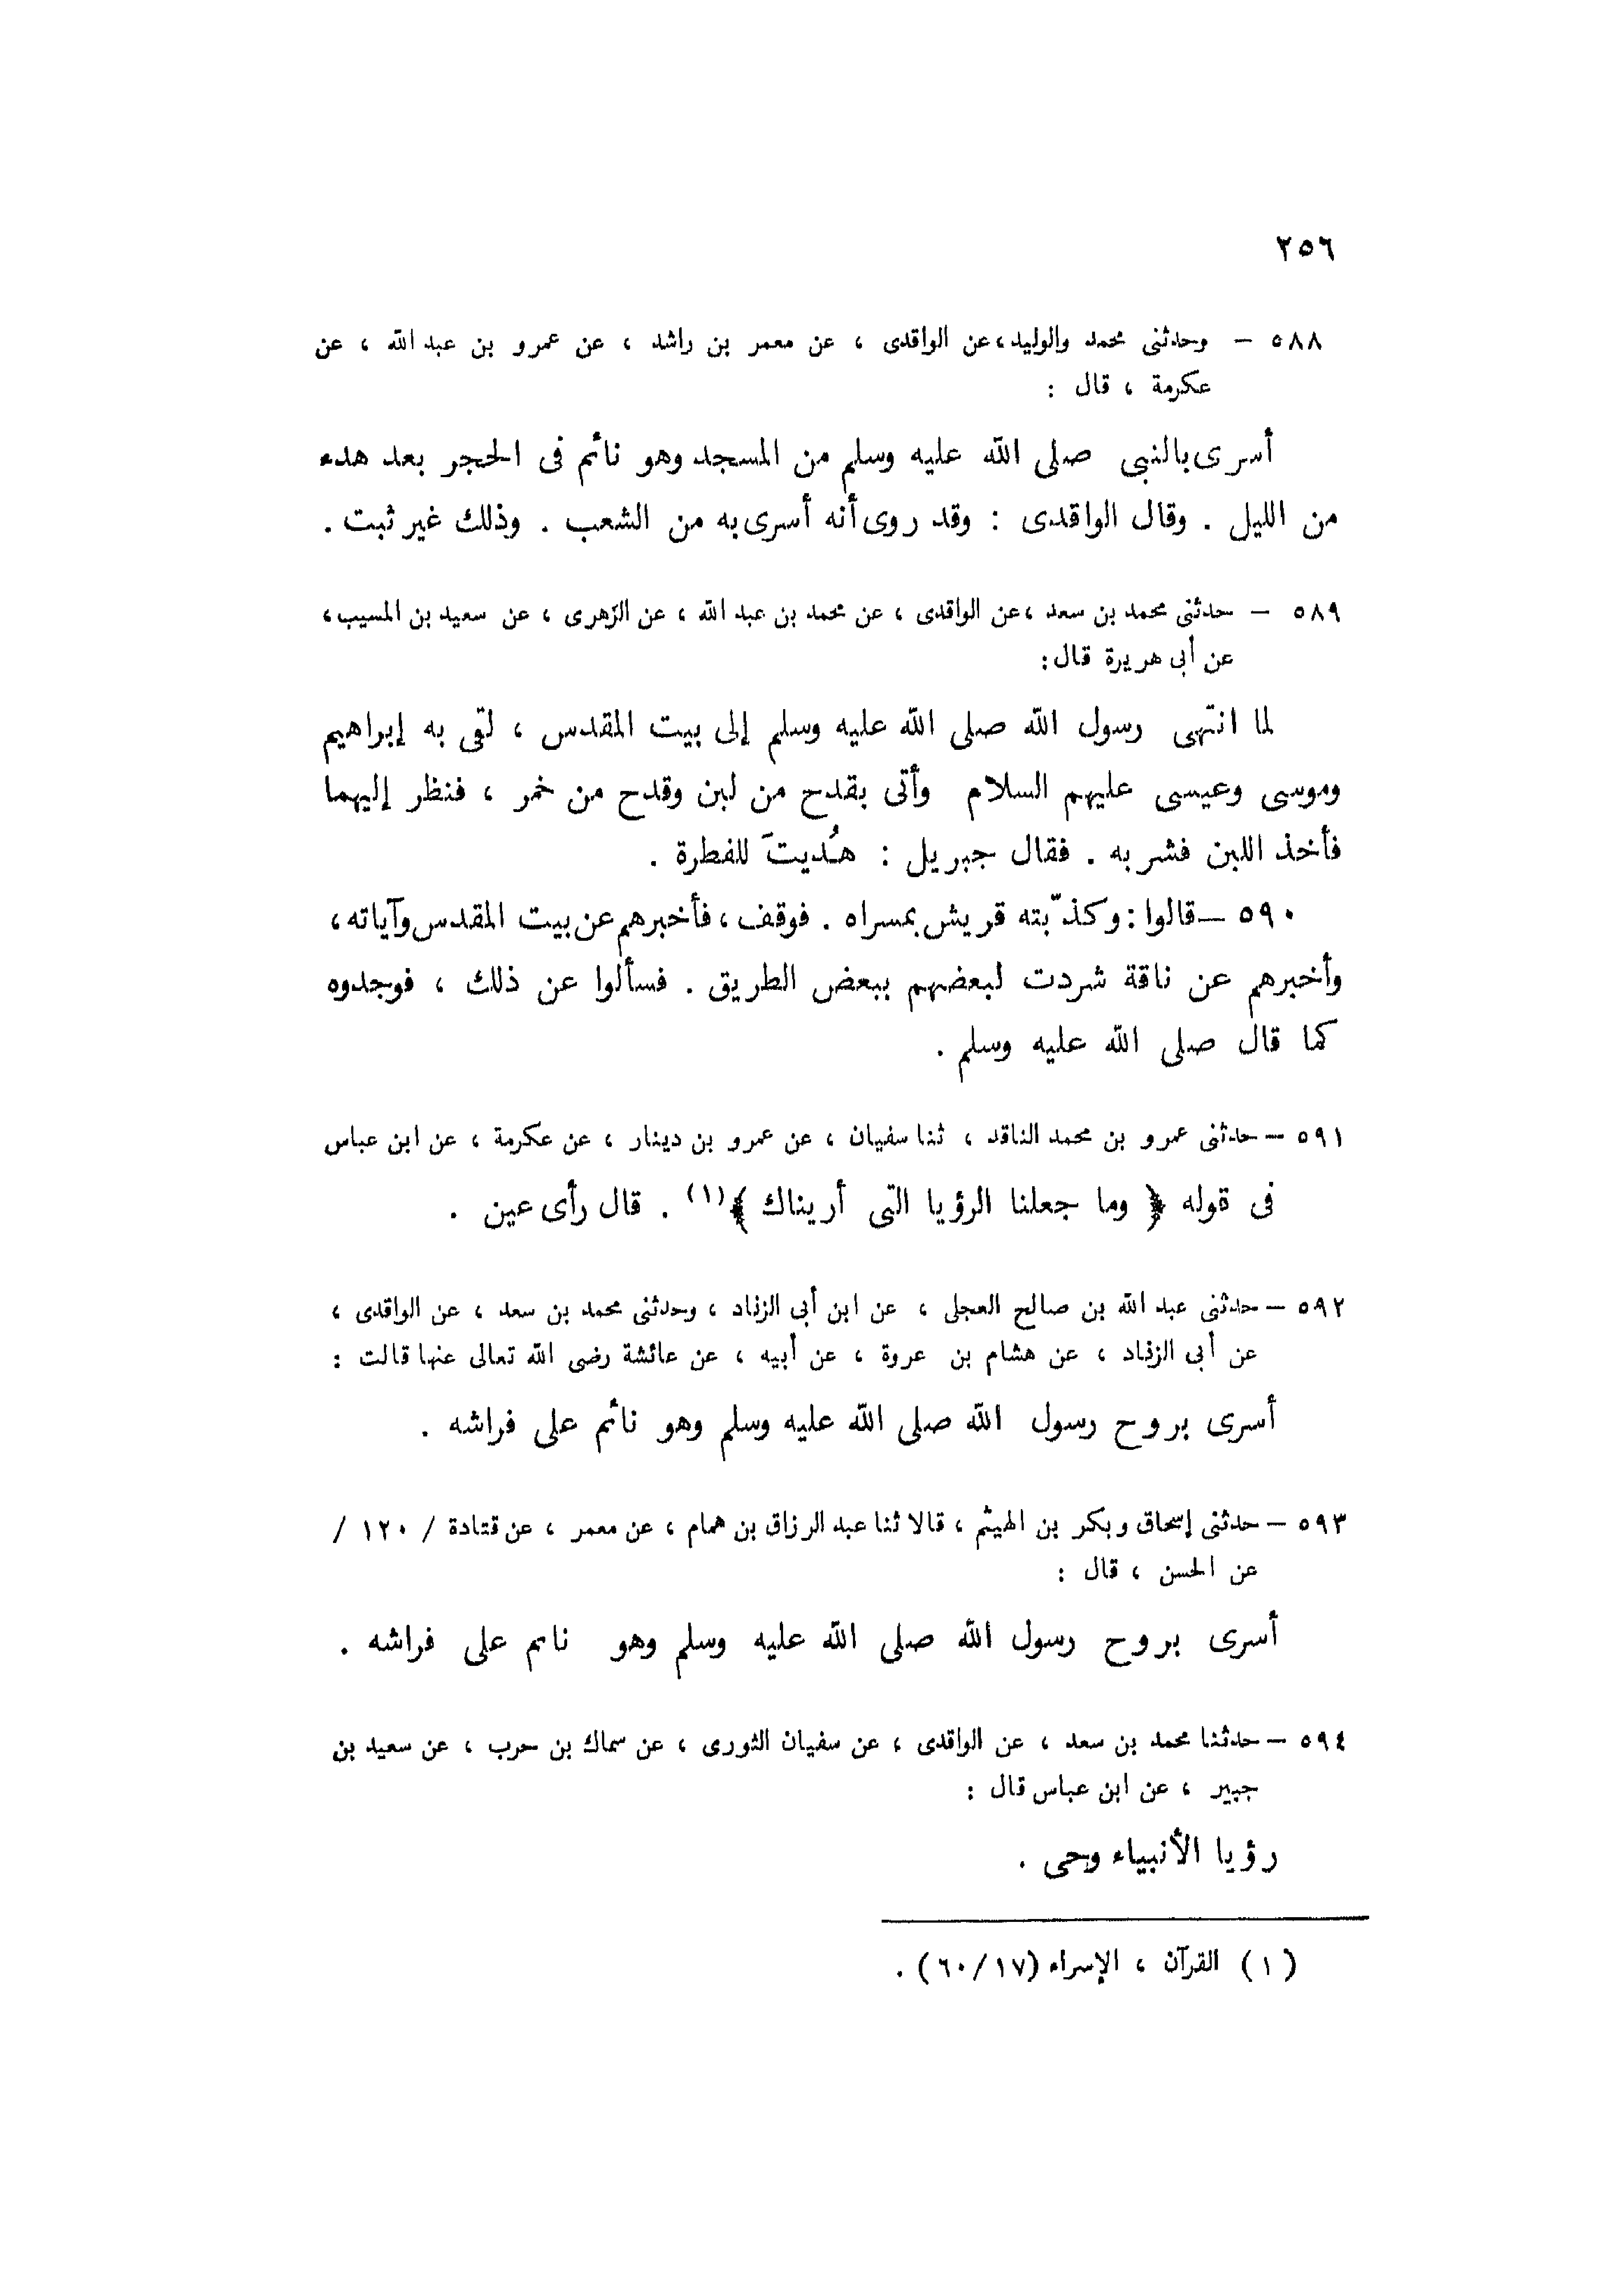 ٢٥٦
٥٨٨ – وحدثنى محمد والوليد، عن الواقدى ، عن معمر بن راشد ، عن عمرو بن عبد الله ، عن
عكرمة ، قال :
أسرى بالنبى صلى الله عليه وسلم من المسجد وهو نائم فى الحجر بعد هدء
من الليل . وقال الواقدى : وقد روى أنه أسرى به من الشعب . وذلك غير ثبت .
٥٨٩ – حدثنى محمد بن سعد ، عن الواقدى ، عن محمد بن عبد الله ، عن الزهرى ، عن سعيد بن المسيب ،
عن أبى هريرة قال :
لما انتهى رسول الله صلى الله عليه وسلم إلى بيت المقدس ، لقى به إبراهيم
وموسى وعيسى عليهم السلام وأتى بقدح من لبن وقدح من خمر ، فنظر إليهما
فأخذ اللبن فشربه . فقال جبريل : هُديتَ للفطرة .
٥٩٠ – قالوا : وكذّبته قريش بمسراه . فوقف ، فأخبرهم عن بيت المقدس وآياته ،
وأخبرهم عن ناقة شردت لبعضهم ببعض الطريق . فسألوا عن ذلك ، فوجدوه
كما قال صلى الله عليه وسلم .
٥٩١ – حدثنى عمرو بن محمد الناقد ، ثنا سفيان ، عن عمرو بن دينار ، عن عكرمة ، عن ابن عباس
فى قوله ﴿ وما جعلنا الرؤيا التى أريناك ﴾(١) . قال رأى عين .
٥٩٢ – حدثنى عبد الله بن صالح العجلى ، عن ابن أبى الزناد ، وحدثنى محمد بن سعد ، عن الواقدى ،
عن أبى الزناد ، عن هشام بن عروة ، عن أبيه ، عن عائشة رضى الله تعالى عنها قالت :
أسرى بروح رسول الله صلى الله عليه وسلم وهو نائم على فراشه .
٥٩٣ – حدثنى إسحاق وبكر بن الهيثم ، قالا ثنا عبد الرزاق بن همام ، عن معمر ، عن قتادة / ١٢٠ /
عن الحسن ، قال :
أسرى بروح رسول الله صلى الله عليه وسلم وهو نائم على فراشه .
٥٩٤ – حدثنا محمد بن سعد ، عن الواقدى ، عن سفيان الثورى ، عن سماك بن حرب ، عن سعيد بن
جبير ، عن ابن عباس قال :
رؤيا الأنبياء وحى .
(١) القرآن ، الإسراء (٦٠/١٧) .